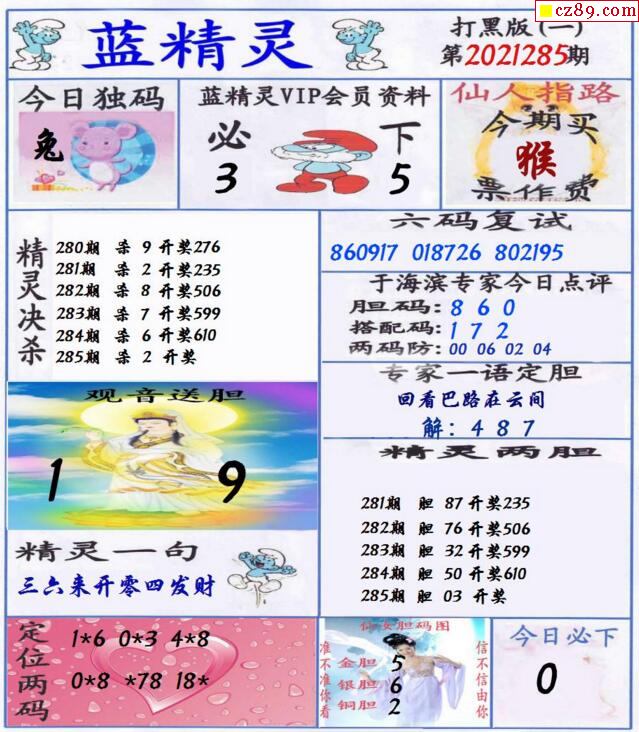 cz89.com
蓝精灵
打黑版(一)
第2021285期
今日独码
兔
蓝精灵VIP会员资料
必 下
3 5
仙人指路
今期买
猴
票作费
精灵决杀
280期 杀 9 开奖276
281期 杀 2 开奖235
282期 杀 8 开奖506
283期 杀 7 开奖599
284期 杀 6 开奖610
285期 杀 2 开奖
六码复试
860917 018726 802195
于海滨专家今日点评
胆码: 8 6 0
搭配码: 1 7 2
两码防: 00 06 02 04
专家一语定胆
回看巴路在云间
解: 4 8 7
观音送胆
1 9
精灵两胆
281期 胆 87 开奖235
282期 胆 76 开奖506
283期 胆 32 开奖599
284期 胆 50 开奖610
285期 胆 03 开奖
精灵一句
三六来开零四发财
定位两码
1*6 0*3 4*8
0*8 *78 18*
仙女胆码图
准不准你看
金胆 5
银胆 6
铜胆 2
信不信由你
今日必下
0